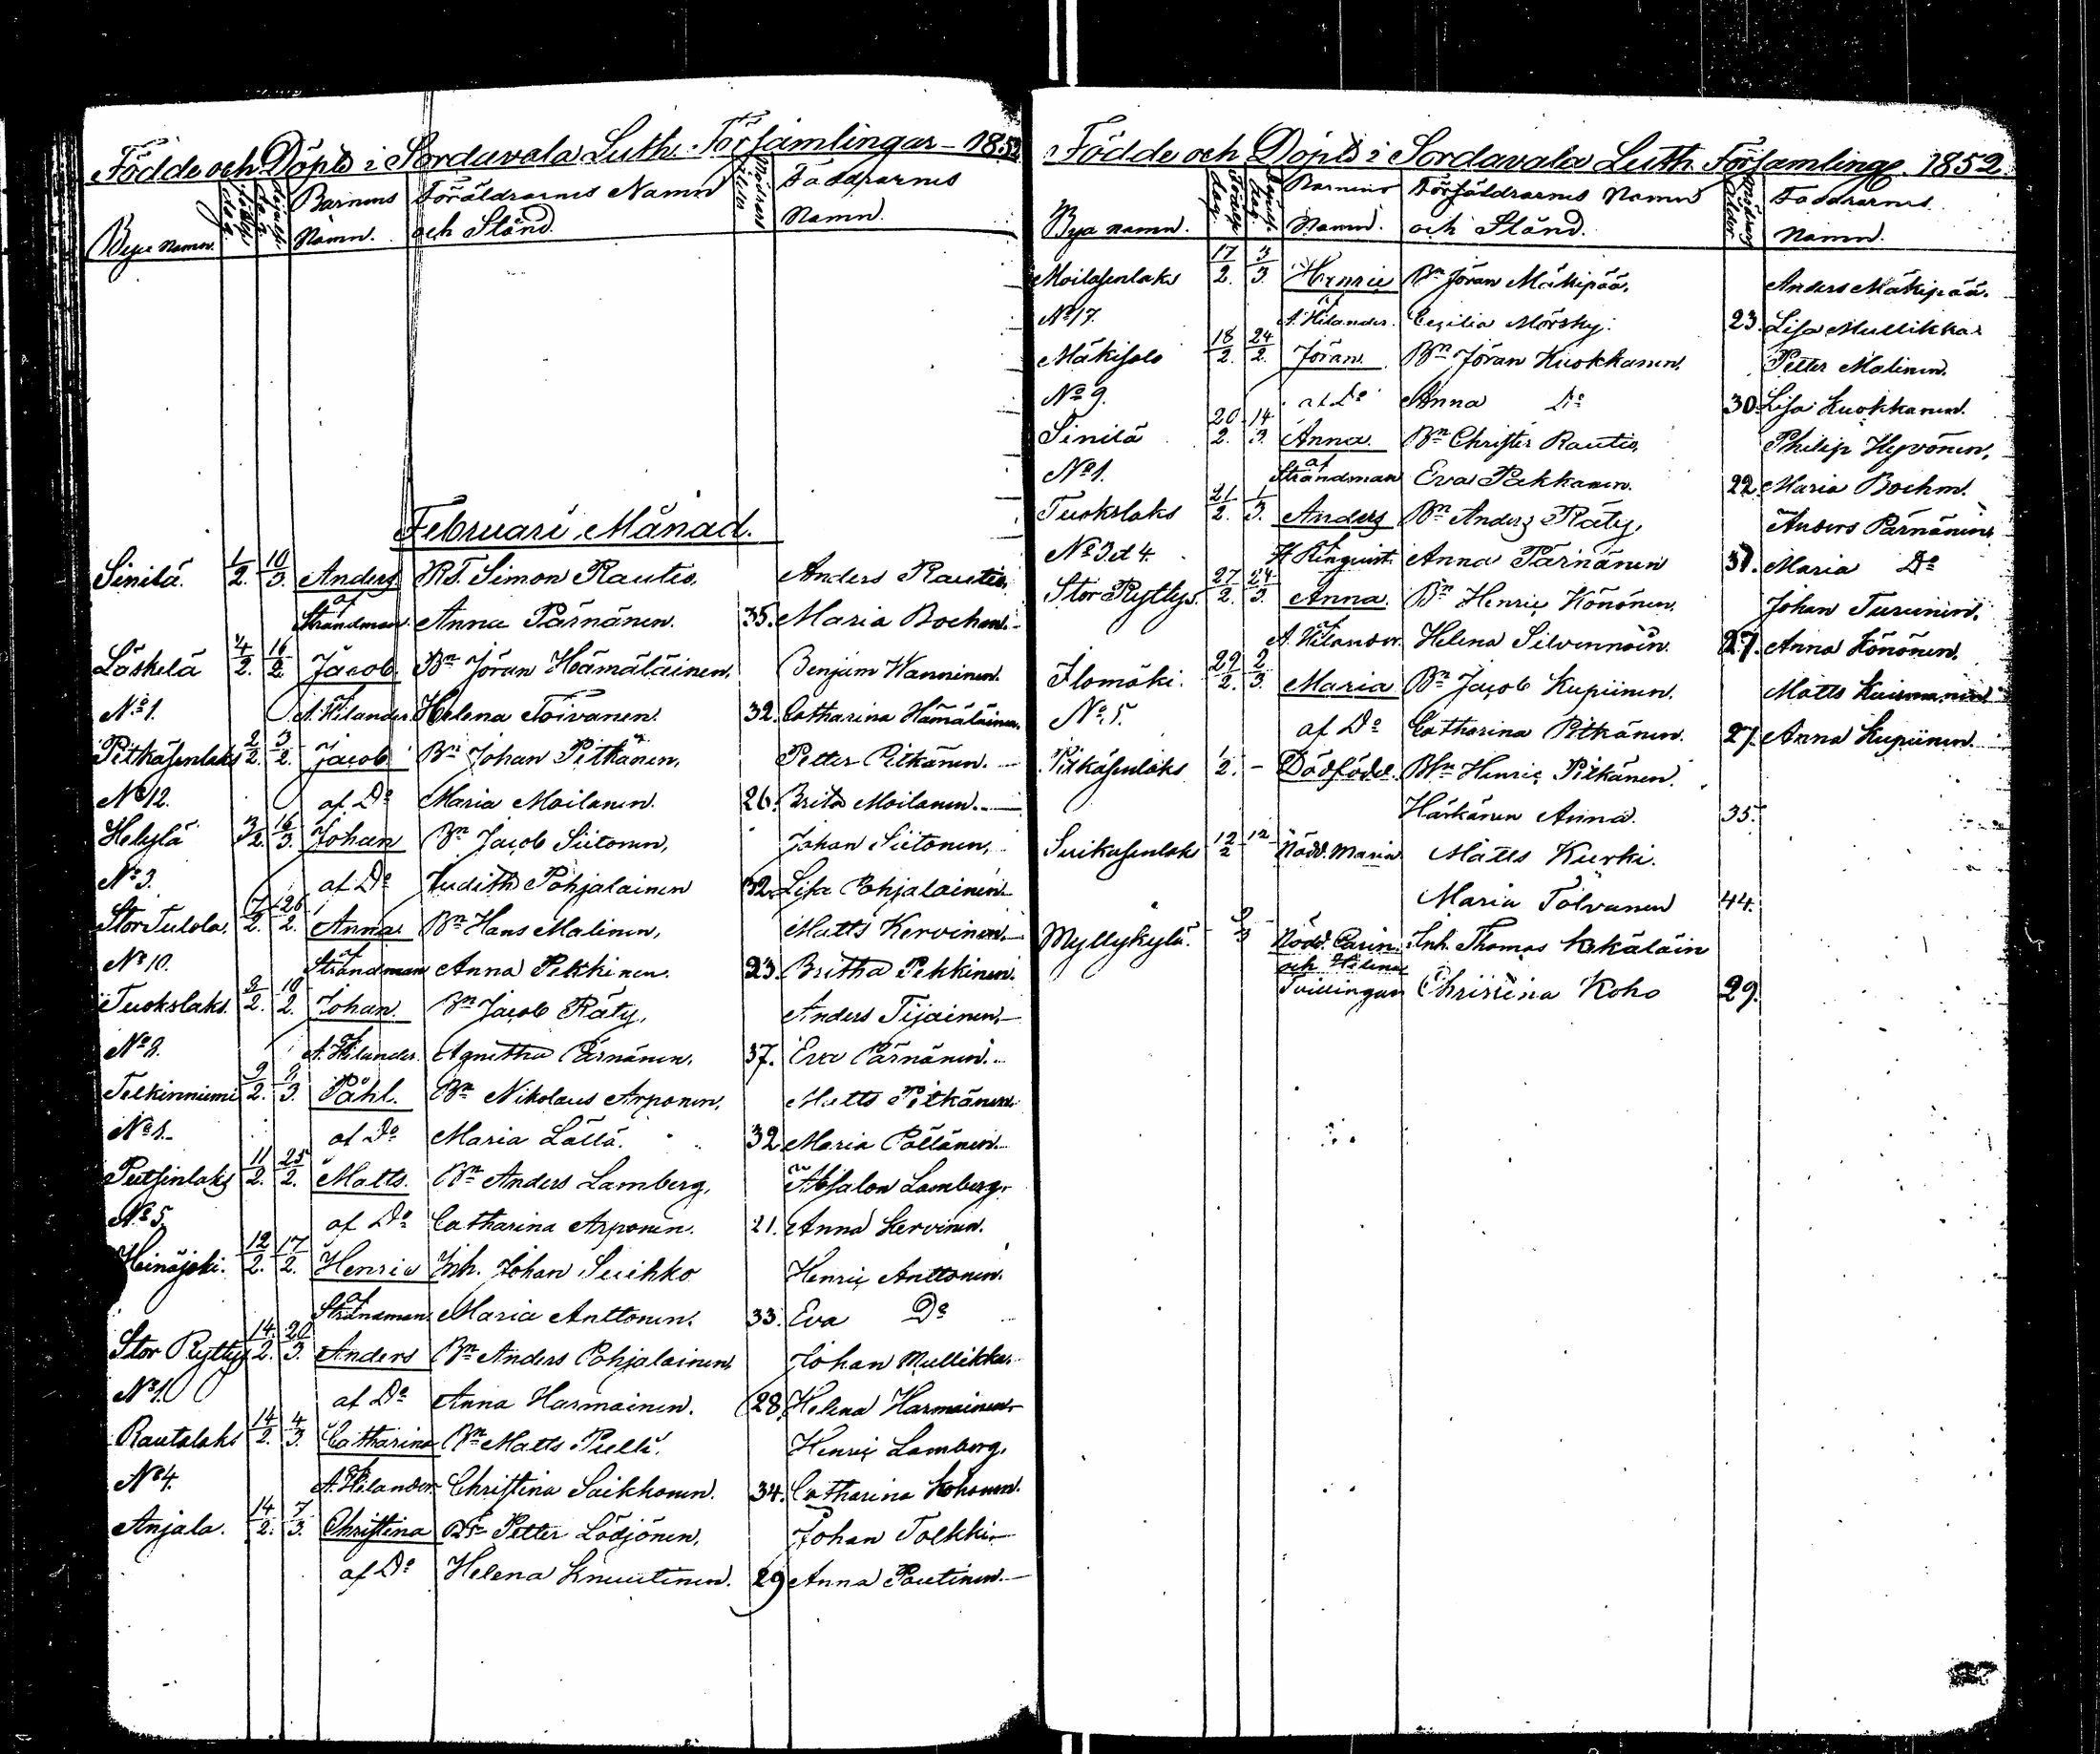 Födde och Döpte i Sordavala Luth. Församlingar - 1852
Bya namn. Barnens Namn. Föräldrarnes Namn och Stånd. Modrens ålder Faddrarnes Namn.
Februari Månad.
Sinilä. 1/2. 10/3. Anders RT. Simon Rautio. Anders Rautio.
af Strandman. Anna Pärnänen. 35. Maria Boehm.
Läskelä 4/2. 16/2. Jacob Bn Jöran Hämäläinen, Benjam Wanninen.
No 1. af A. Hilander. Helena Toivanen. 32. Catharina Hämäläinen.
Pitkäsenlaks 2/2. 3/2. Jacob Bn Johan Pitkänen, Petter Pitkänen.
No 12. af Do Maria Moilanen. 26. Brita Moilanen.
Helylä 3/2. 16/3. Johan Bn Jacob Siitonen, Johan Siitonen,
No 3. af Do Judith Pohjalainen 32. Lisa Pohjalainen.
Stor Tulola. 7/2. 26/2. Anna Bn Hans Malinen, Matts Kervinen.
No 10. af Strandman Anna Pekkinen. 23. Britha Pekkinen.
Tuokslaks. 8/2. 10/2. Johan. Bn Jacob Räty, Anders Tijainen.
No 8. af A. Hilander. Agnetha Pärnänen, 37. Eva Pärnänen.
Telkinniemi 9/2. 8/3. Påhl. Bn Nikolaus Arponen, Matts Pitkänen.
No 1. af Do Maria Lättä. 32 Maria Pöllänen.
Putsinlaks 11/2. 25/2. Matts. Bn Anders Lamberg, Absalon Lamberg.
No 5. af Do Catharina Arponen. 21. Anna Kervinen.
Heinäjoki. 12/2. 17/2. Henric Inh. Johan Suihko Henric Anttonen.
af Strandman. Maria Anttonen. 33. Eva Do
Stor Rytty 14/2. 20/3. Anders Bn Anders Pohjalainen, Johan Mullikka.
No 1. af Do Anna Harmainen. 28. Helena Harmainen.
Rautalaks 14/2. 4/3. Catharina Bn Matts Pulli. Henric Lamberg.
No 4. af A. Hilander. Christina Saikkonen. 34. Catharina Kohonen.
Anjala. 14/2. 7/3. Christina Petter Lödjönen, Johan Tolkki.
af Do Helena Knuutinen. 29 Anna Pautinen.
Födde och Döpte i Sordavala Luth. Församling. 1852.
Bya namn. Födelse dag. Barnens Namn. Författdrarnes Namn och Stånd. Modrens ålder Faddrarnes Namn.
Moilasenlaks 17/2. 3/3. Henric Bn Jöran Mäkipää. Anders Mäkipää.
No 17. af A. Hilander. Cecilia Mörsky. 23. Lisa Mullikka.
Mäkisalo 18/2. 24/2. Jöran. Bn Jöran Kuokkanen. Petter Malinen.
No 9. af Do Anna Do 30. Lisa Kuokkanen.
Sinilä 20/2. 14/3. Anna. Bn Christer Rautio. Philip Hyvönen.
No 1. af Strandman Eva Pakkanen. 22. Maria Boehm.
Tuokslaks 21/2. 1/3. Anders Bn Anders Räty, Anders Pärnänen.
No 3 et 4. Anna Pärnänen 37. Maria Do
Stor Ryttys. 27/2. 24/3. Anna. Bn Henric Könönen. Johan Turunen.
af A. Hilander. Helena Silvennoin. 27. Anna Könönen.
Ilomäki. 29/2. 2/3. Maria Bn Jacob Kupiinen. Matts Kuismanen.
No 5. af Do Catharina Pitkänen. 27. Anna Kupiinen.
Pitkäsenlaks 1/2. - Dödfödd. Henric Pitkänen.
Härkönen Anna. 35.
Suikasenlaks 12/2 12 Nödd. Maria Matts Kurki.
Maria Tolvanen 44.
Myllykylä. 9/3 - Nödd. Carin Inh. Thomas Kekäläin
och Helena
Tvillingar Christina Koho 29.